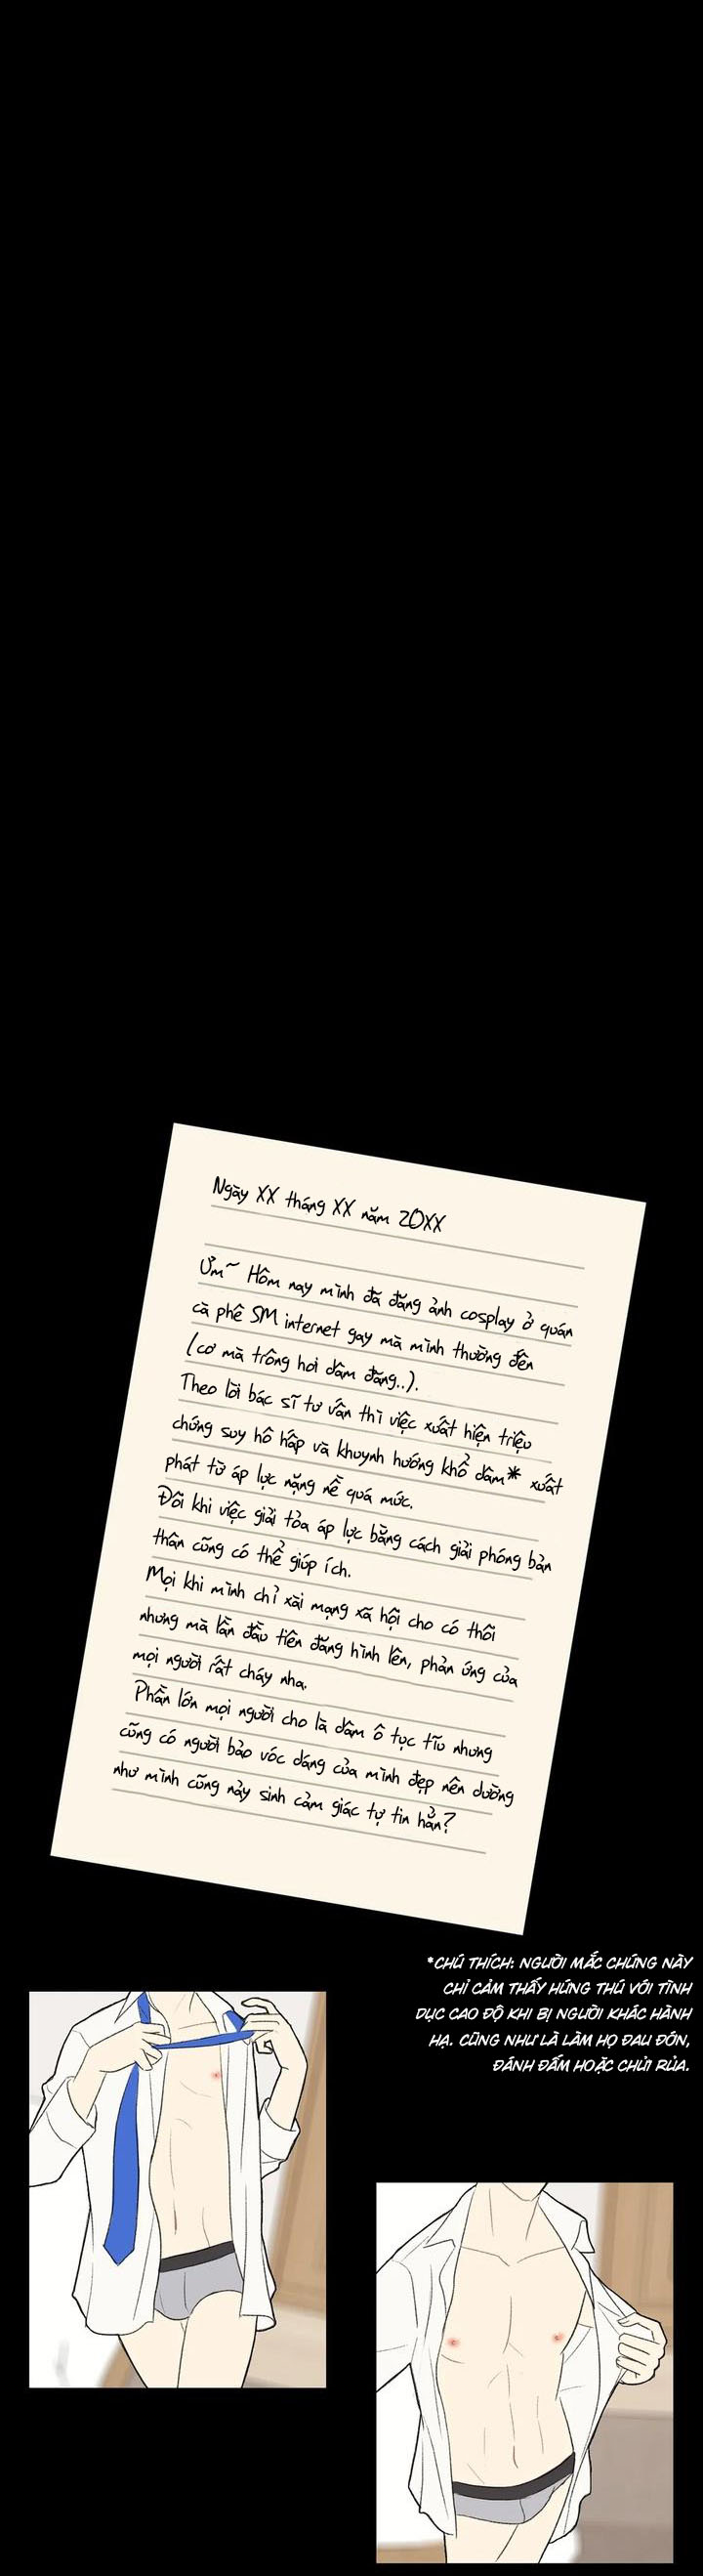 Ngày XX tháng XX năm 20XX
Ưm~ Hôm nay mình đã đăng ảnh cosplay ở quán
cà phê SM internet gay mà mình thường đến
(cơ mà trông hơi dâm đãng..).
Theo lời bác sĩ tư vấn thì việc xuất hiện triệu
chứng suy hô hấp và khuynh hướng khổ dâm* xuất
phát từ áp lực nặng nề quá mức.
Đôi khi việc giải tỏa áp lực bằng cách giải phóng bản
thân cũng có thể giúp ích.
Mọi khi mình chỉ xài mạng xã hội cho có thôi
nhưng mà lần đầu tiên đăng hình lên, phản ứng của
mọi người rất cháy nha.
Phần lớn mọi người cho là dâm ô tục tĩu nhưng
cũng có người bảo vóc dáng của mình đẹp nên dường
như mình cũng nảy sinh cảm giác tự tin hẳn?
*CHÚ THÍCH: NGƯỜI MẮC CHỨNG NÀY
CHỈ CẢM THẤY HỨNG THÚ VỚI TÌNH
DỤC CAO ĐỘ KHI BỊ NGƯỜI KHÁC HÀNH
HẠ. CŨNG NHƯ LÀ LÀM HỌ ĐAU ĐỚN,
ĐÁNH ĐẤM HOẶC CHỬI RỦA.